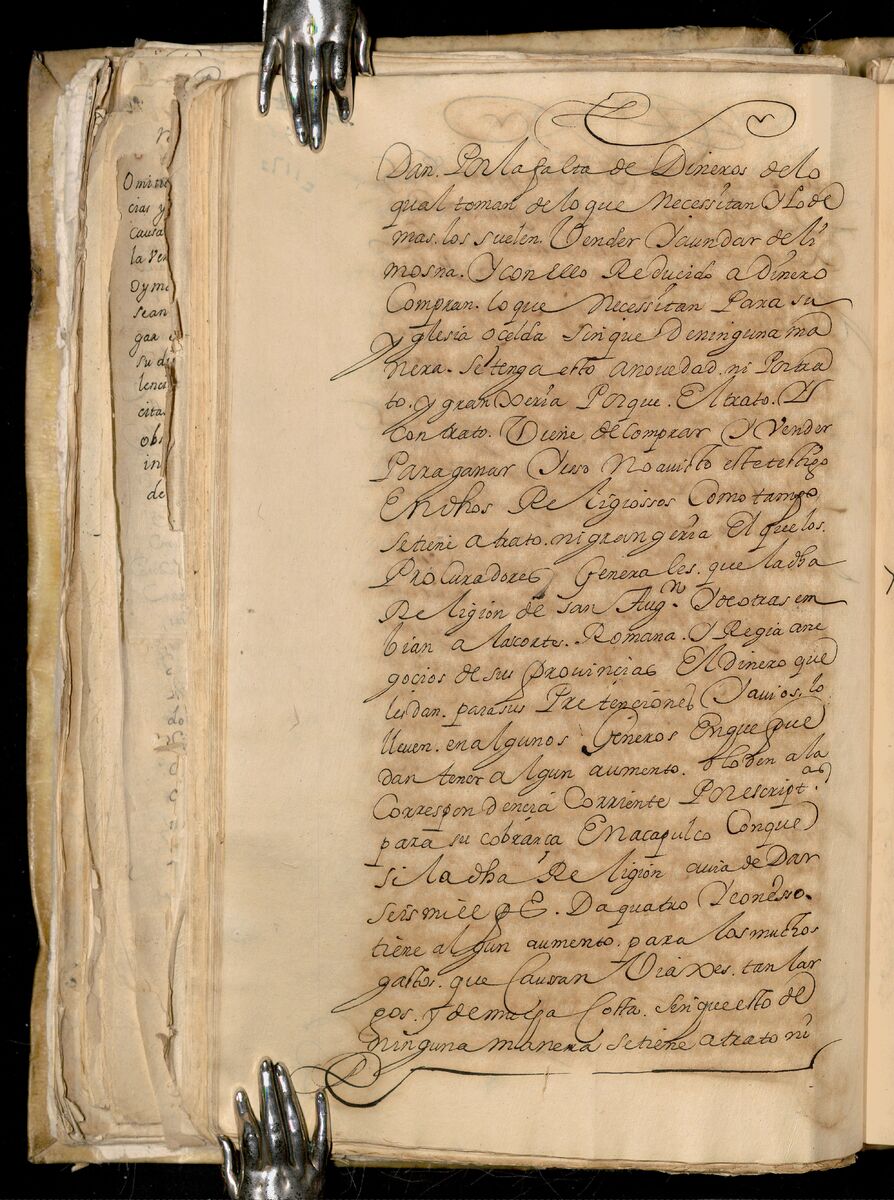 Omitie
cias y
causa
la Ven
oyma
sean
gar
su di
lenci
cita
obs
in
de
Dan. Por la falta de Dineros de lo
qual toman de lo que Necessitan Y Lo de
mas. los suelen. Vender Y aun dar de li
mosna. Y con ello Reducido a Dinero
Compran. lo que Necessitan Para su
yglesia o celda sin que de ninguna ma
nera. se tenga esto a novedad. ni Por tra
to. y granxeria Porque. El trato. Y
Contrato. Viene de comprar Y Vender
Para ganar Y esso No a visto este testigo
En dhos Religiossos Como tampo
se tiene a trato. ni grangeria El que los.
Procuradores Generales. que la dha
Religion de San Augn. Y de otras em
bian a las cortes. Romana. Y Regia a ne
gocios de sus Provincias El Dinero que
les dan. para sus Pretenciones Y avios. lo
lleven. en algunos Generos En que pue
dan tener algun aumento. o lo den a la
Correspondencia Corriente Por escriptas
para su cobranza En acapulco Con que
si la dha Religion avia de Dar
seis mill ps. Da quatro Y con esso.
tiene algun aumento. para los muchos
gastos. que Caussan Viaxes. tan lar
gos. Y de mucha Costa. sin que esto de
ninguna manera se tiene a trato ni